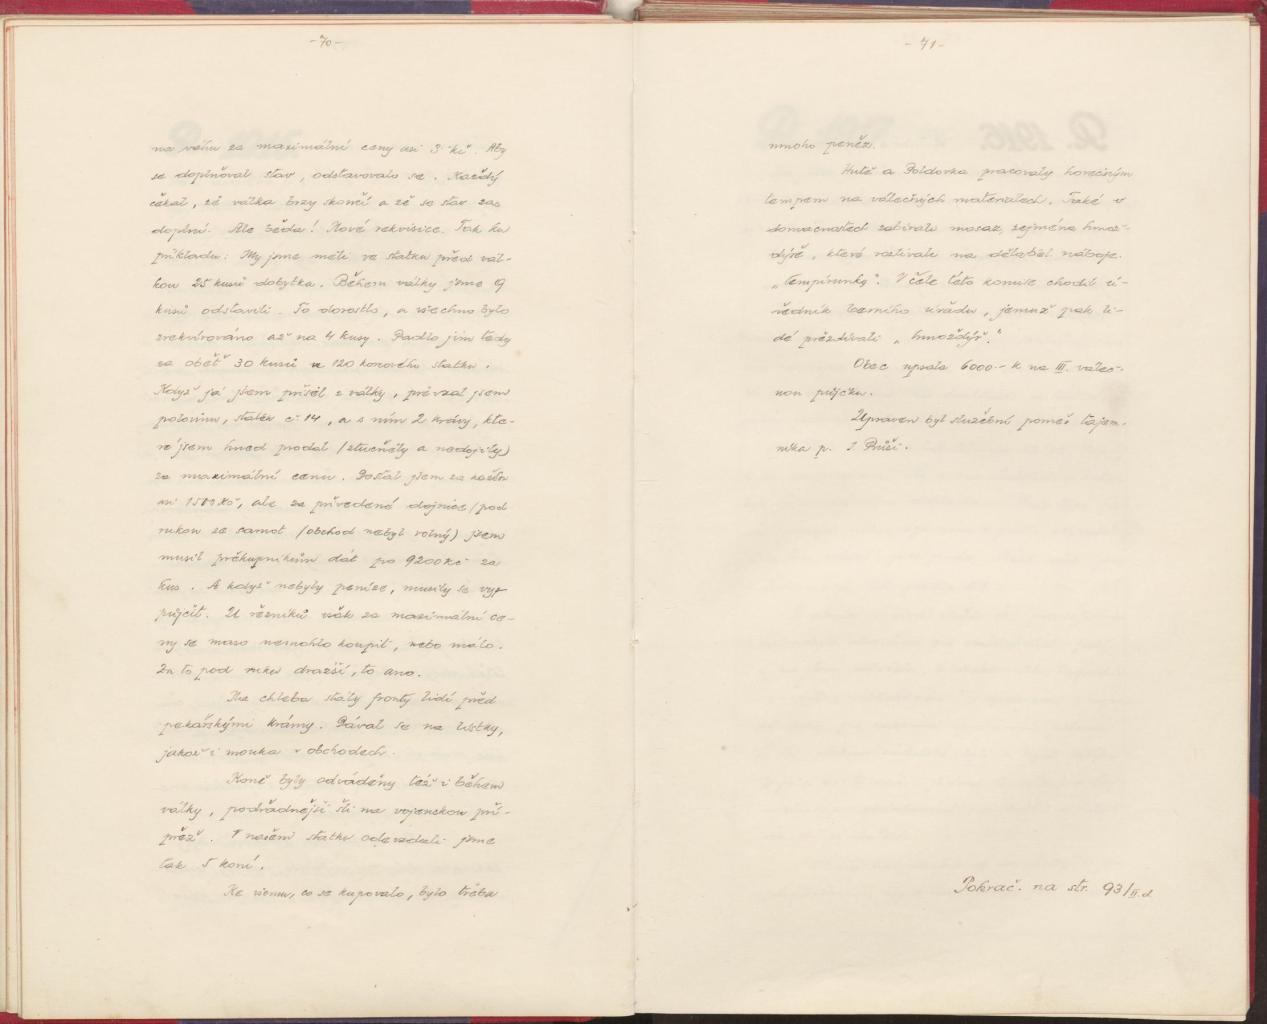 - 70 -
na váhu za maximální ceny asi 3 kč. Aby
se doplňoval stav, odstavovalo se. Každý
čekal, že válka brzy skončí a že se stav zas
doplní. Ale běda! Nové rekvisice. Tak ku
příkladu: My jsme měli ve statku před vál-
kou 25 kusů dobytka. Během války jsme 9
kusů odstavili. To dorostlo, a všechno bylo
zrekvírováno až na 4 kusy. Padlo jim tedy
za oběť 30 kusů u 120 korcového statku.
Když já jsem přišel z války, převzal jsem
polovinu, statek č. 14, a s ním 2 krávy, kte-
ré jsem hned prodal /ztučněly a nedojily/
za maximální cenu. Dostal jsem za každou
Kč, ale za přivedené dojnice /pod
rukou ze samot /obchod nebyl volný/ jsem
musil překupníkům dát po 9200 Kč za
kus. A když nebyly peníze, musily se vy-
půjčit. U řezníků však za maximální ce-
ny se maso nemohlo koupit, nebo málo.
Za to pod ruku dražší, to ano.
Na chleba stály fronty lidí před
pekařskými krámy. Dával se na lístky,
jakož i mouka v obchodech.
Koně byly odváděny též i během
války, podřadnější šli na vojenskou pří-
přež. V našem statku odevzdali jsme
tak 5 koní.
Ke všemu, co se kupovalo, bylo třeba
- 71 -
mnoho peněz.
Hutě a Poldovka pracovaly horečným
tempem na válečných materialech. Také v
domácnostech sebírali mosaz, zejména hmož-
dýře, které rozlívali na dělabel. náboje.
„tempírunky". V čele této komise chodil ú-
ředník berního úřadu, jemuž pak li-
dé přezdívali „hmoždýř."
Obec upsala 6000.- K na III. váleč-
nou půjčku.
Upraven byl služební poměr tajem-
níka p. J.
Pokrač. na str. 93/II.d